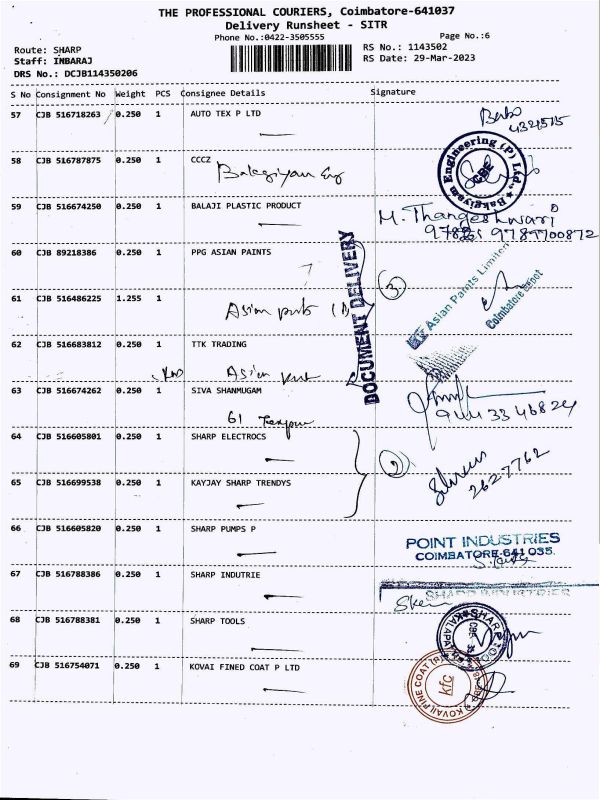 THE PROFESSIONAL COURIERS, Coimbatore-641037
Delivery Runsheet - SITR
Phone No.:0422-3505555 Page No.:6
Route: SHARP RS No.: 1143502
Staff: INBARAJ RS Date: 29-Mar-2023
DRS No.: DCJB114350206
S No Consignment No Weight PCS Consignee Details Signature
57 CJB 516718263 0.250 1 AUTO TEX P LTD
58 CJB 516787875 0.250 1 CCCZ
Bakgiyam Eng
Bakgiyam Engineering (P) Ltd., CBE
59 CJB 516674250 0.250 1 BALAJI PLASTIC PRODUCT
M. Thangeshwari
60 CJB 89218386 0.250 1 PPG ASIAN PAINTS
DOCUMENT DELIVERY
3
Asian Paints Limited
Coimbatore Depot
61 CJB 516486225 1.255 1
Asian
62 CJB 516683812 0.250 1 TTK TRADING
Asian
63 CJB 516674262 0.250 1 SIVA SHANMUGAM
61
64 CJB 516605801 0.250 1 SHARP ELECTROCS
2
65 CJB 516699538 0.250 1 KAYJAY SHARP TRENDYS
2627762
66 CJB 516605820 0.250 1 SHARP PUMPS P
POINT INDUSTRIES
COIMBATORE-641 035.
67 CJB 516788386 0.250 1 SHARP INDUTRIE
SHARP INDUSTRIES
68 CJB 516788381 0.250 1 SHARP TOOLS
SHARP TOOLS
69 CJB 516754071 0.250 1 KOVAI FINED COAT P LTD
KOVAI FINE COAT (P)
kfc